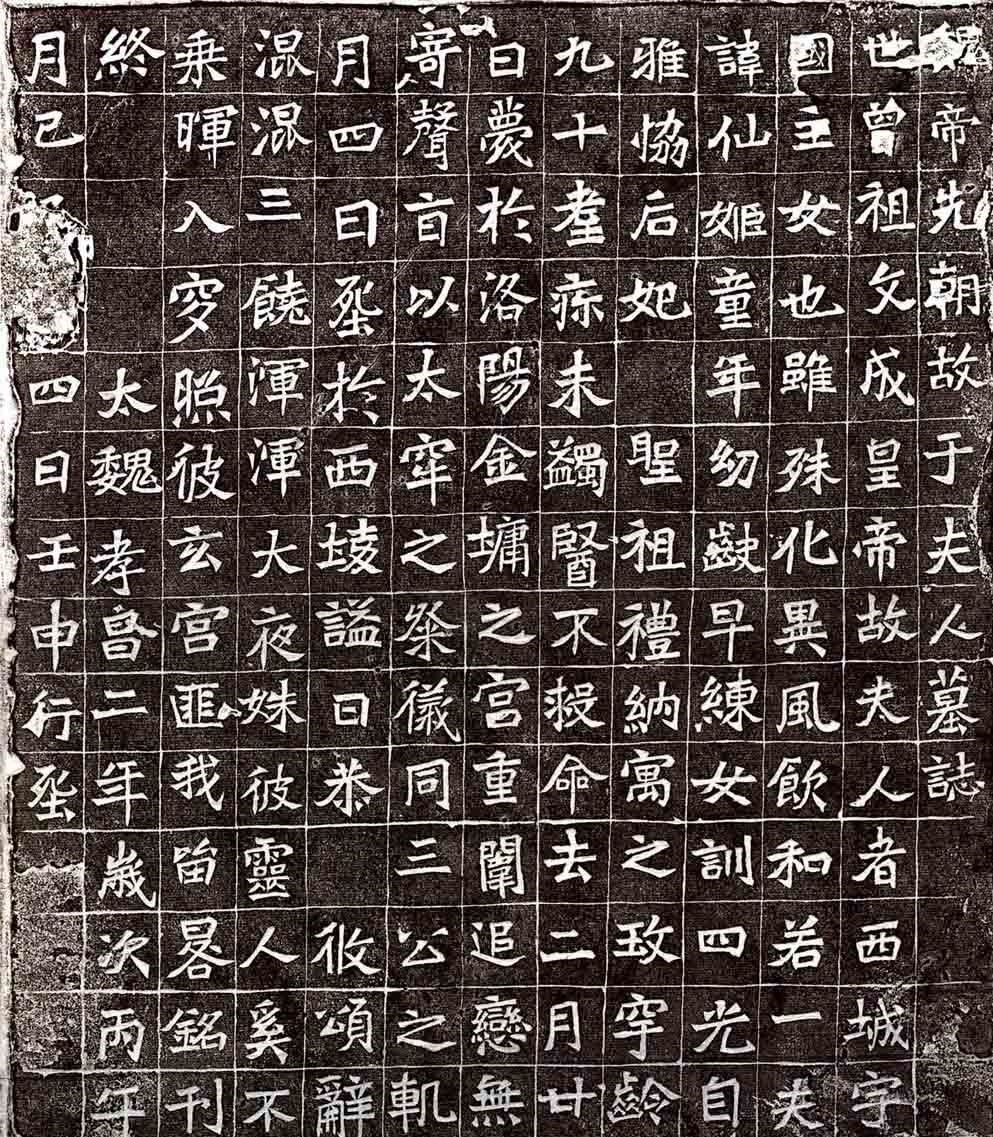 魏帝先朝故于夫人墓誌
世曾祖文成皇帝故夫人者西城宇
國主女也雖殊化異風飲和若一夫
諱仙姬童年幼齔早練女訓四光自
雅協后妃 聖祖禮納寓之玫宇齡
九十耋疹未蠲醫不救命去二月廿
日薨於洛陽金墉之宮重闈追戀無
寄聲旨以太牢之祭儀同三公之軌
月四日葬於西陵謚曰恭 攸頌辭
混混三饒渾渾大夜姝彼靈人奚不
乘暉入穸照彼玄宮匪我留晷銘刊
終 太魏孝昌二年歲次丙午
月己四日壬申行葬